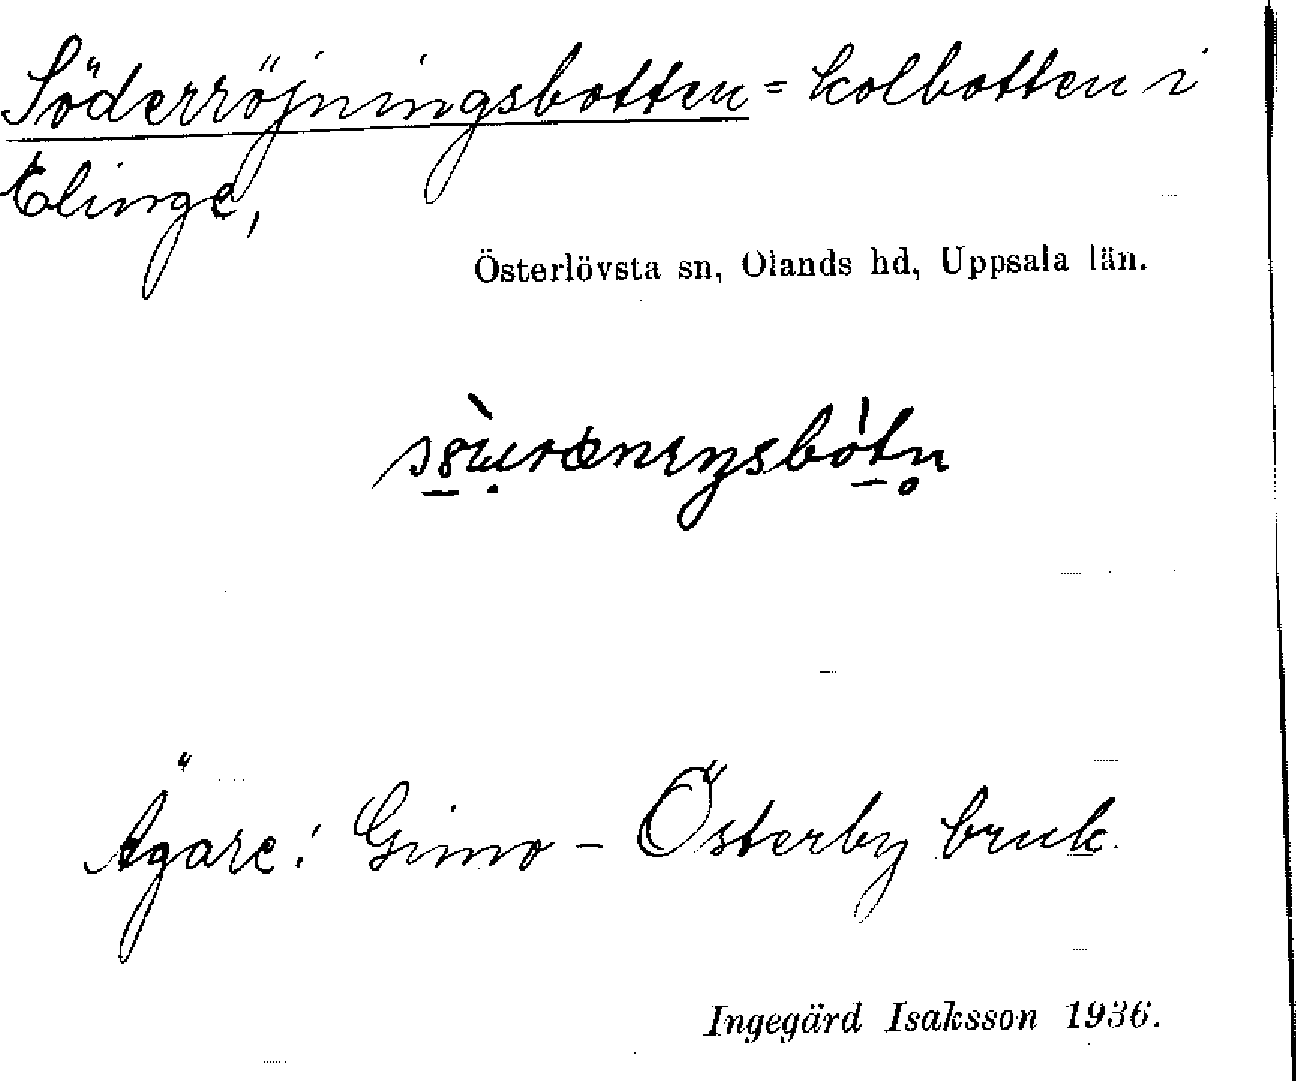 Söderröjningsbotten = kolbotten i
Elinge,
Österlövsta sn, Olands hd, Uppsala län.
Ägare: Gimo - Österby bruk.
Ingegärd Isaksson 1936.